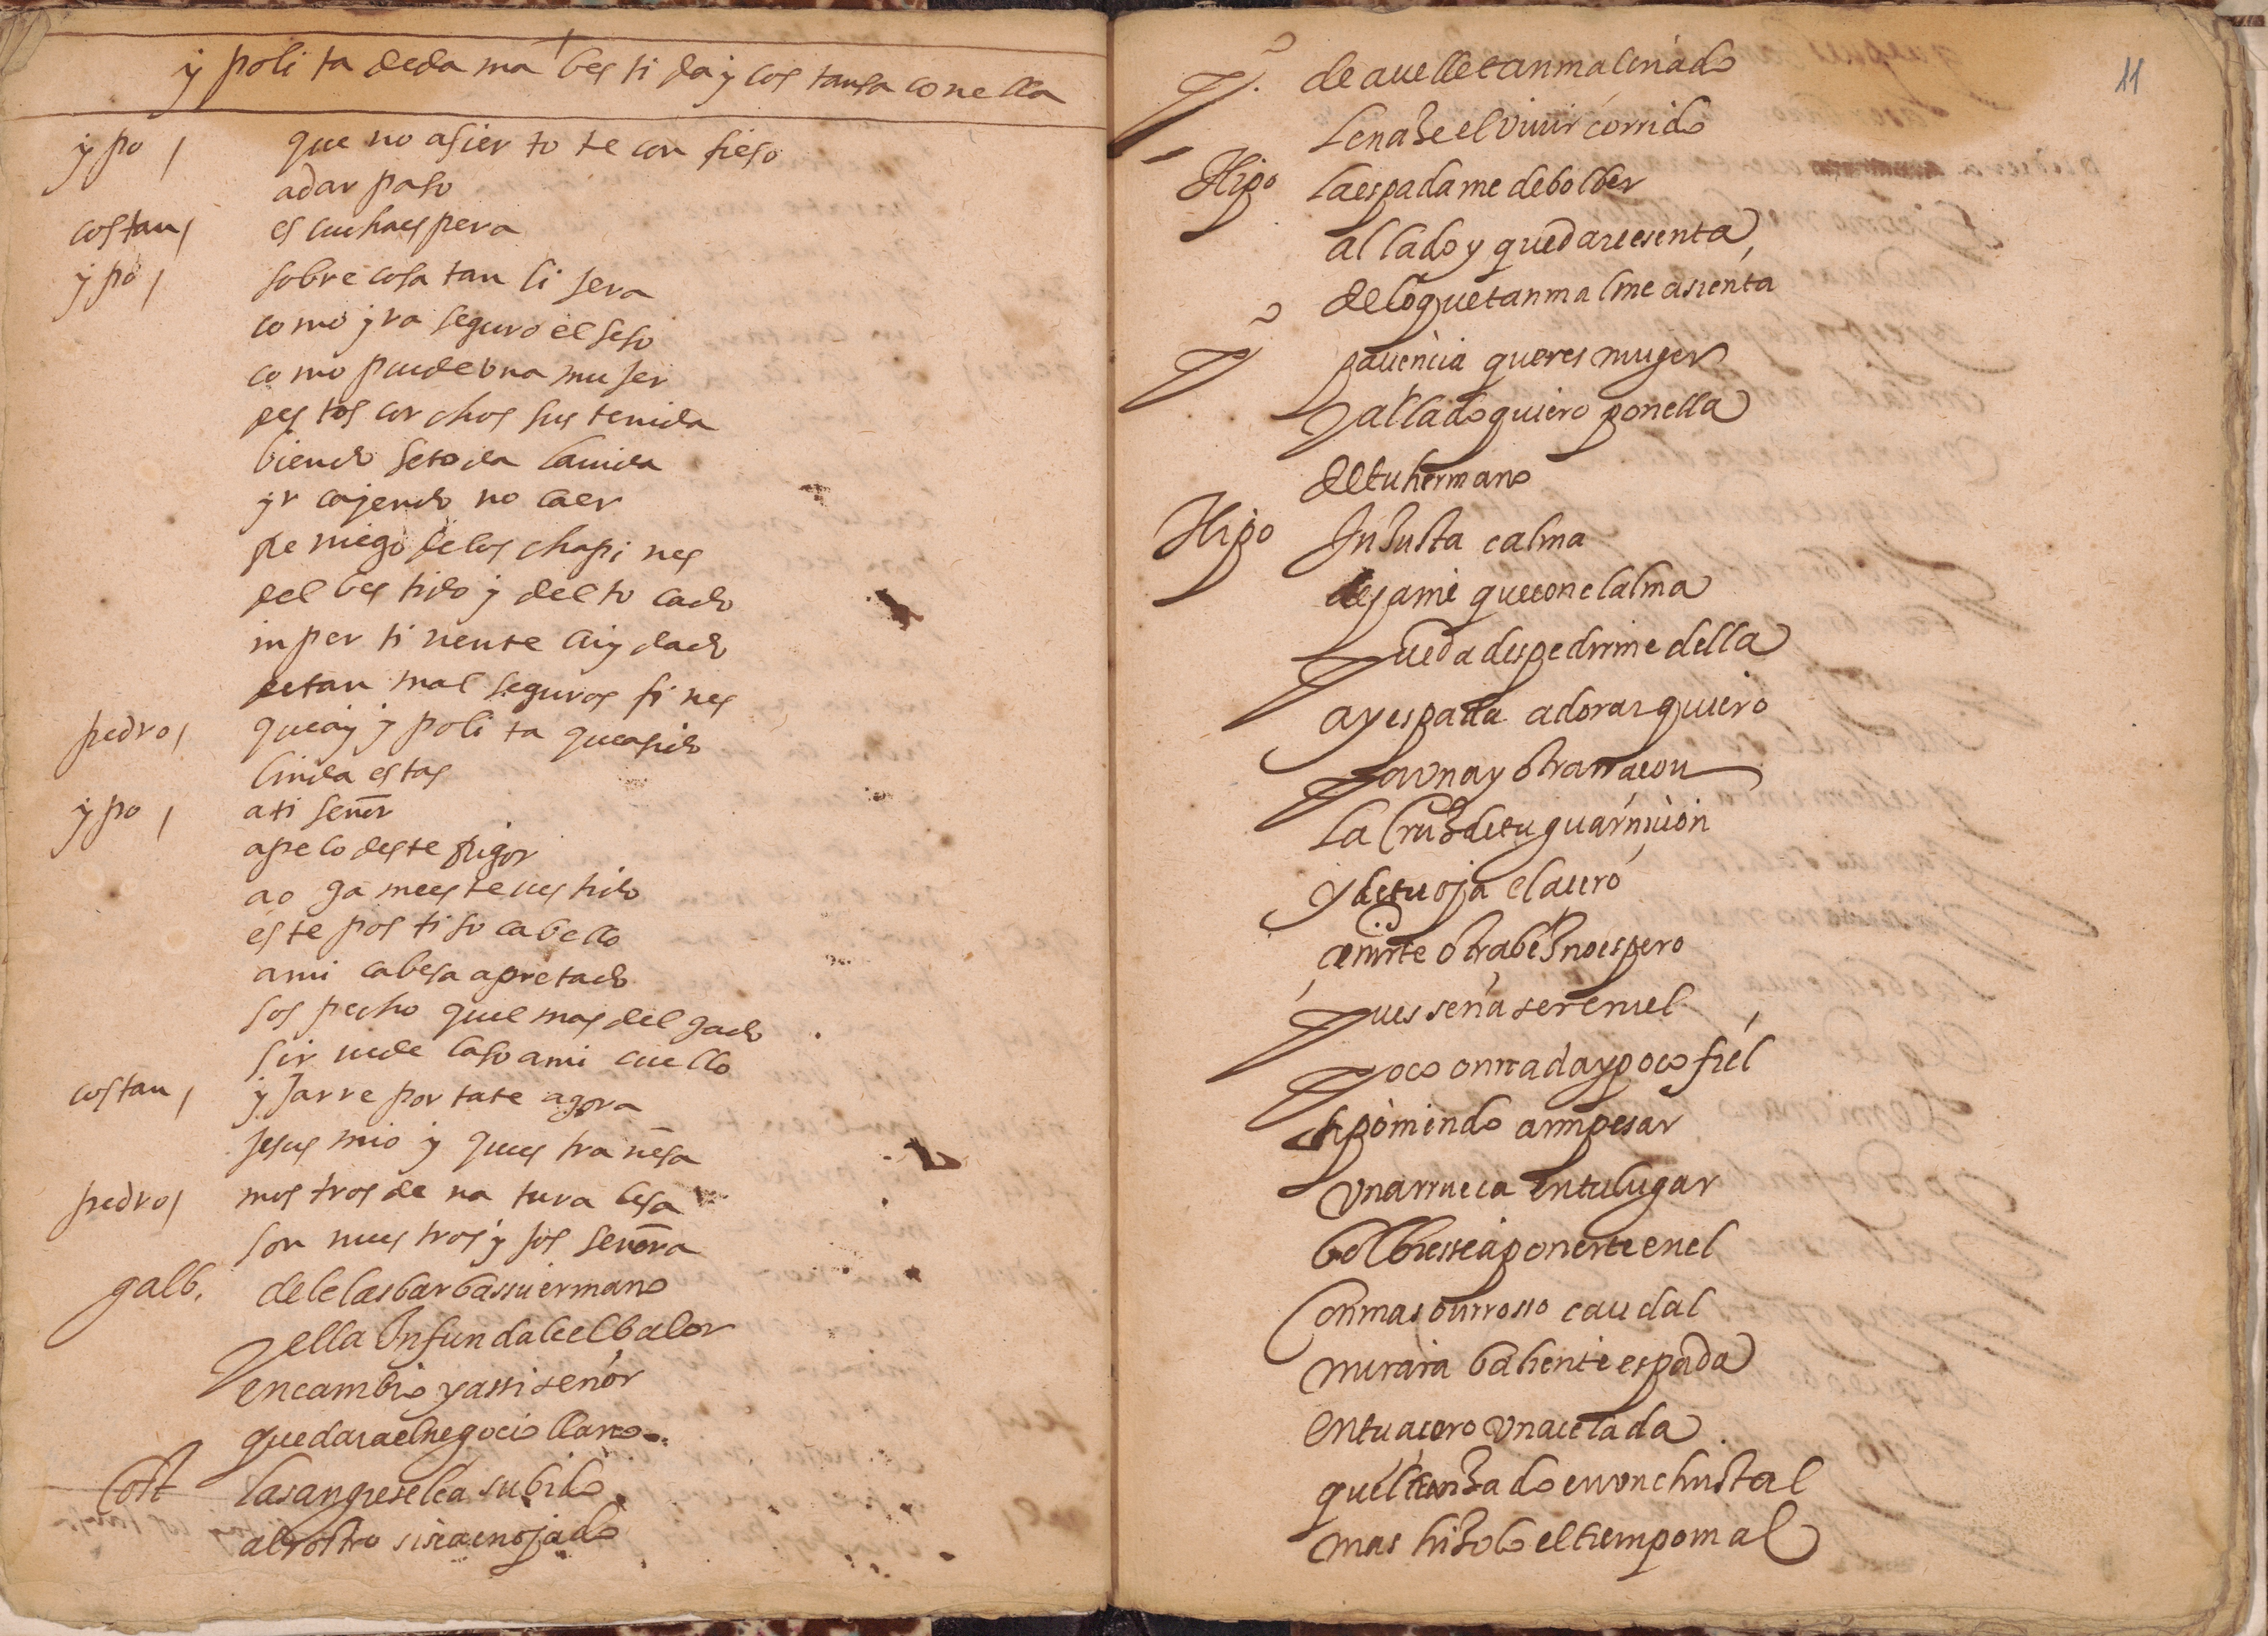 ypolita de dama bestida y costansa con ella
ypo / que no asierto te confieso
a dar paso
costan / escucha espera
ypo / sobre cosa tan lijera
como yra seguro el seso
como puede una mujer
destos corchos sustenida
biendose toda la uida
yr cayendo no caer
rreniego de los chapines
del bestido y del tocado
inpertinente cuydado
de tan mal seguros fines
pedro / que ay ypolita que a sido
linda estas
ypo / a ti señor
apelo deste rrigor
aogame este uestido
este postiso cabello
a mi cabesa apretado
sospecho quel mas delgado
sirue de laso a mi cuello
costan / y jarre portate agora
jesus mio y que estrañesa
pedro / mostros de naturalesa
son nuestros yjos señora
galb. dele las barbas su ermano
y ella infundale el balor
en cambio y assi señor
quedara el negocio llano
Cost la sangre se le a subido
al rostro sin a enojado
P. de auelle tan mal criado
le nase el viuir corrido
Hipo la espada me de bolber
al lado y quedare esenta
de lo que tan mal me asienta
P paciencia que eres muger
y al lado quiero ponella
de tu hermano
Hipo Injusta calma
dejame que con el alma
pueda despedirme della
ay espada adorar quiero
por vna y otra rraçon
la cruz de tu guarniçion
y de tu oja el açero
çeñirte otra bez no espero
pues seria ser cruel
poco onrrada y poco fiel
si poniendo a mi pesar
vna rrueca en tu lugar
bolbiesse a ponerte en el
Con mas burroso caudal
mirara baliente espada
en tu açero vna çelada
quel trenzado en vn christal
mas hizolo el tiempo mal
11